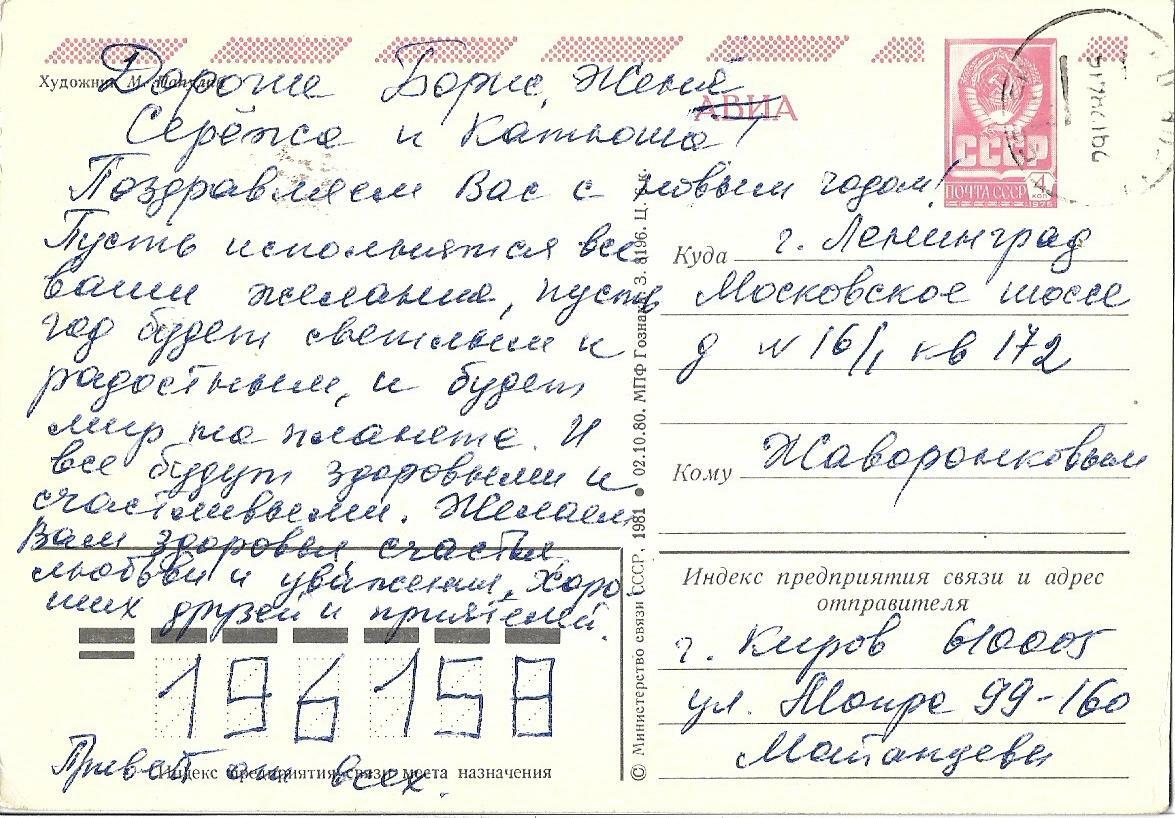 Художник М.
АВИА
СССР
ПОЧТА СССР
4 коп
1976
Дорогие Борис, Женя
Серёжа и Катюша!
Поздравляем Вас с новым годом!
Пусть исполнятся все
ваши желания, пусть
год будет светлым и
радостным, и будет
мир на планете. И
все будут здоровыми и
счастливыми. Желаем
Вам здоровья, счастья,
любви и уважения, хоро
ших друзей и приятелей.
196158
Привет от всех.
Индекс предприятия связи места назначения
© Министерство связи СССР, 1981 • 02.10.80. МПФ Гознак. З. 8196. Ц. к.
Куда г. Ленинград
Московское шоссе
д № 16/1 кв 172
Кому Жаворонковым
Индекс предприятия связи и адрес
отправителя
г. Киров 610005
ул. Мопра 99-160